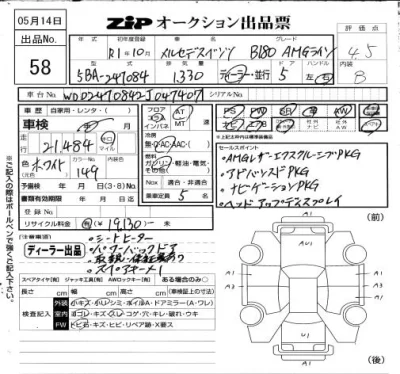 05月14日
ZIP オークション出品票
出品No.
58
年式 初年度登録 車名 グレード 評価点
R1年10月 メルセデスベンツ B180 AMGライン 4.5
型式 排気量 ドア ハンドル 内装
5BA-247084 1,330 ディーラー・並行 5 左 右 B
車台No. WDD2470842J047407 シリアルNo.
車歴 自家用・レンタ・( )
車検
フロア インパネ AT MT
PS PW SR AW
走行 21,484 km マイル
冷房 無・AC・AAC
※上記以外は標準装備品
セールスポイント
・AMGレザーエクスクルーシブPKG
・アドバンスドPKG
・ナビゲーションPKG
・ヘッドアップディスプレイ
色 ホワイト カラーNo. 149
燃料 ガソリン・軽油・電気・その他( )
予備検 年 月 日 (3・8) No.
書類有効期限 年 月 日
NOX 適合・非適合
乗車定員 5 名
登録No.
リサイクル料金 有 19,130- 未
(注意事項)
ディーラー出品
・シートヒーター
・パワーバックドア
・取説・保証書あり
・スペアキー1
スペアタイヤ(有) ジャッキ工具(有) AWロックキー(有) ある場合のみ○
長さ cm 幅 cm 高さ cm (車検証上の寸法)
検査記入
外装 小キズ・小ハミ・ボイルA・ドアミラー(A・ワレ)
室内 ヨゴレ・キズ・スレ・コゲ・穴・キレ・破れ・ウキ
FW 飛石・キズ・ヒビ・リペア跡・X要ス
※ご記入の際はボールペンで強くご記入下さい。
(前)
A1
U1
A1
A1
A3
A1
A1
U1
(後)